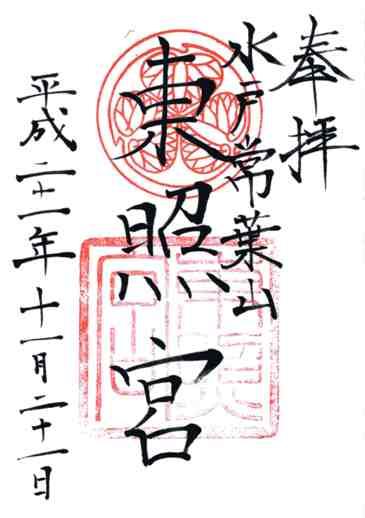 奉拝
水戸常葉山
東照宮
平成二十一年十一月二十一日